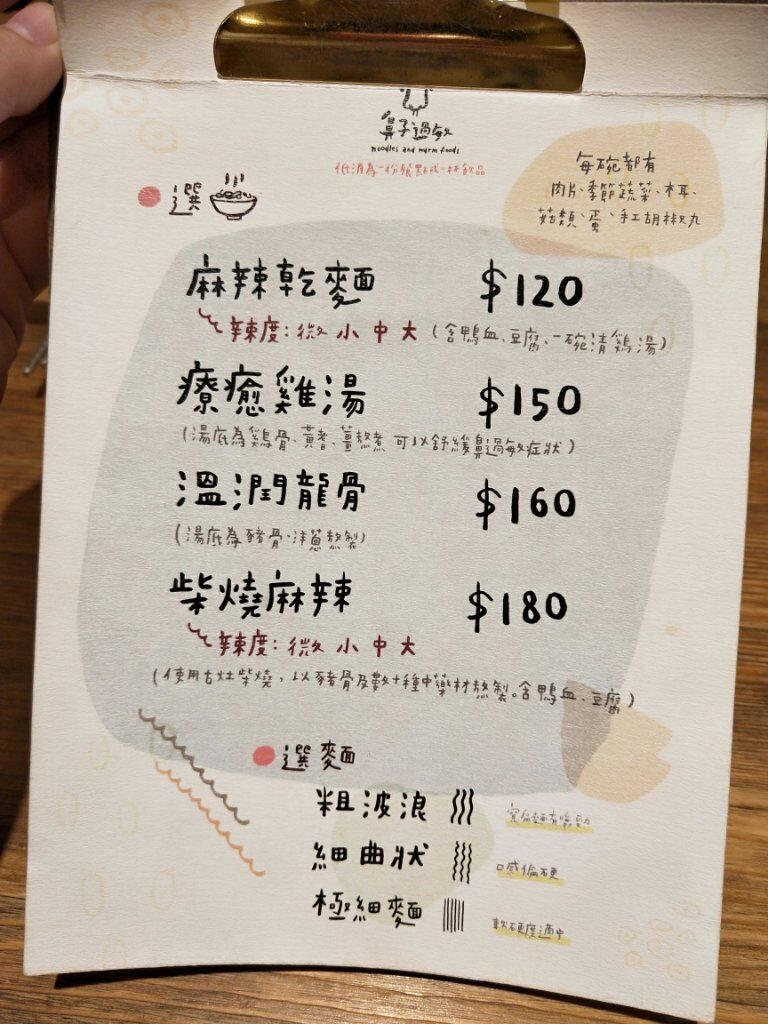 鼻子過敏
noodles and warm foods
低消為一份餐點或一杯飲品
每碗都有
肉片、季節蔬菜、木耳、
菇類、蛋、手工胡椒丸
選
麻辣乾麵 $120
辣度：微 小 中 大 (含鴨血、豆腐、一碗清鷄湯)
療癒雞湯 $150
(湯底為鷄骨、黃耆、薑熬煮 可以舒緩鼻過敏症狀)
溫潤龍骨 $160
(湯底為豬骨、洋蔥熬製)
柴燒麻辣 $180
辣度：微 小 中 大
(使用古灶柴燒，以豬骨及數十種中藥材熬製。含鴨血、豆腐)
選麵
粗波浪 寬條麵有嚼勁
細曲狀 口感偏硬
極細麵 軟硬度適中